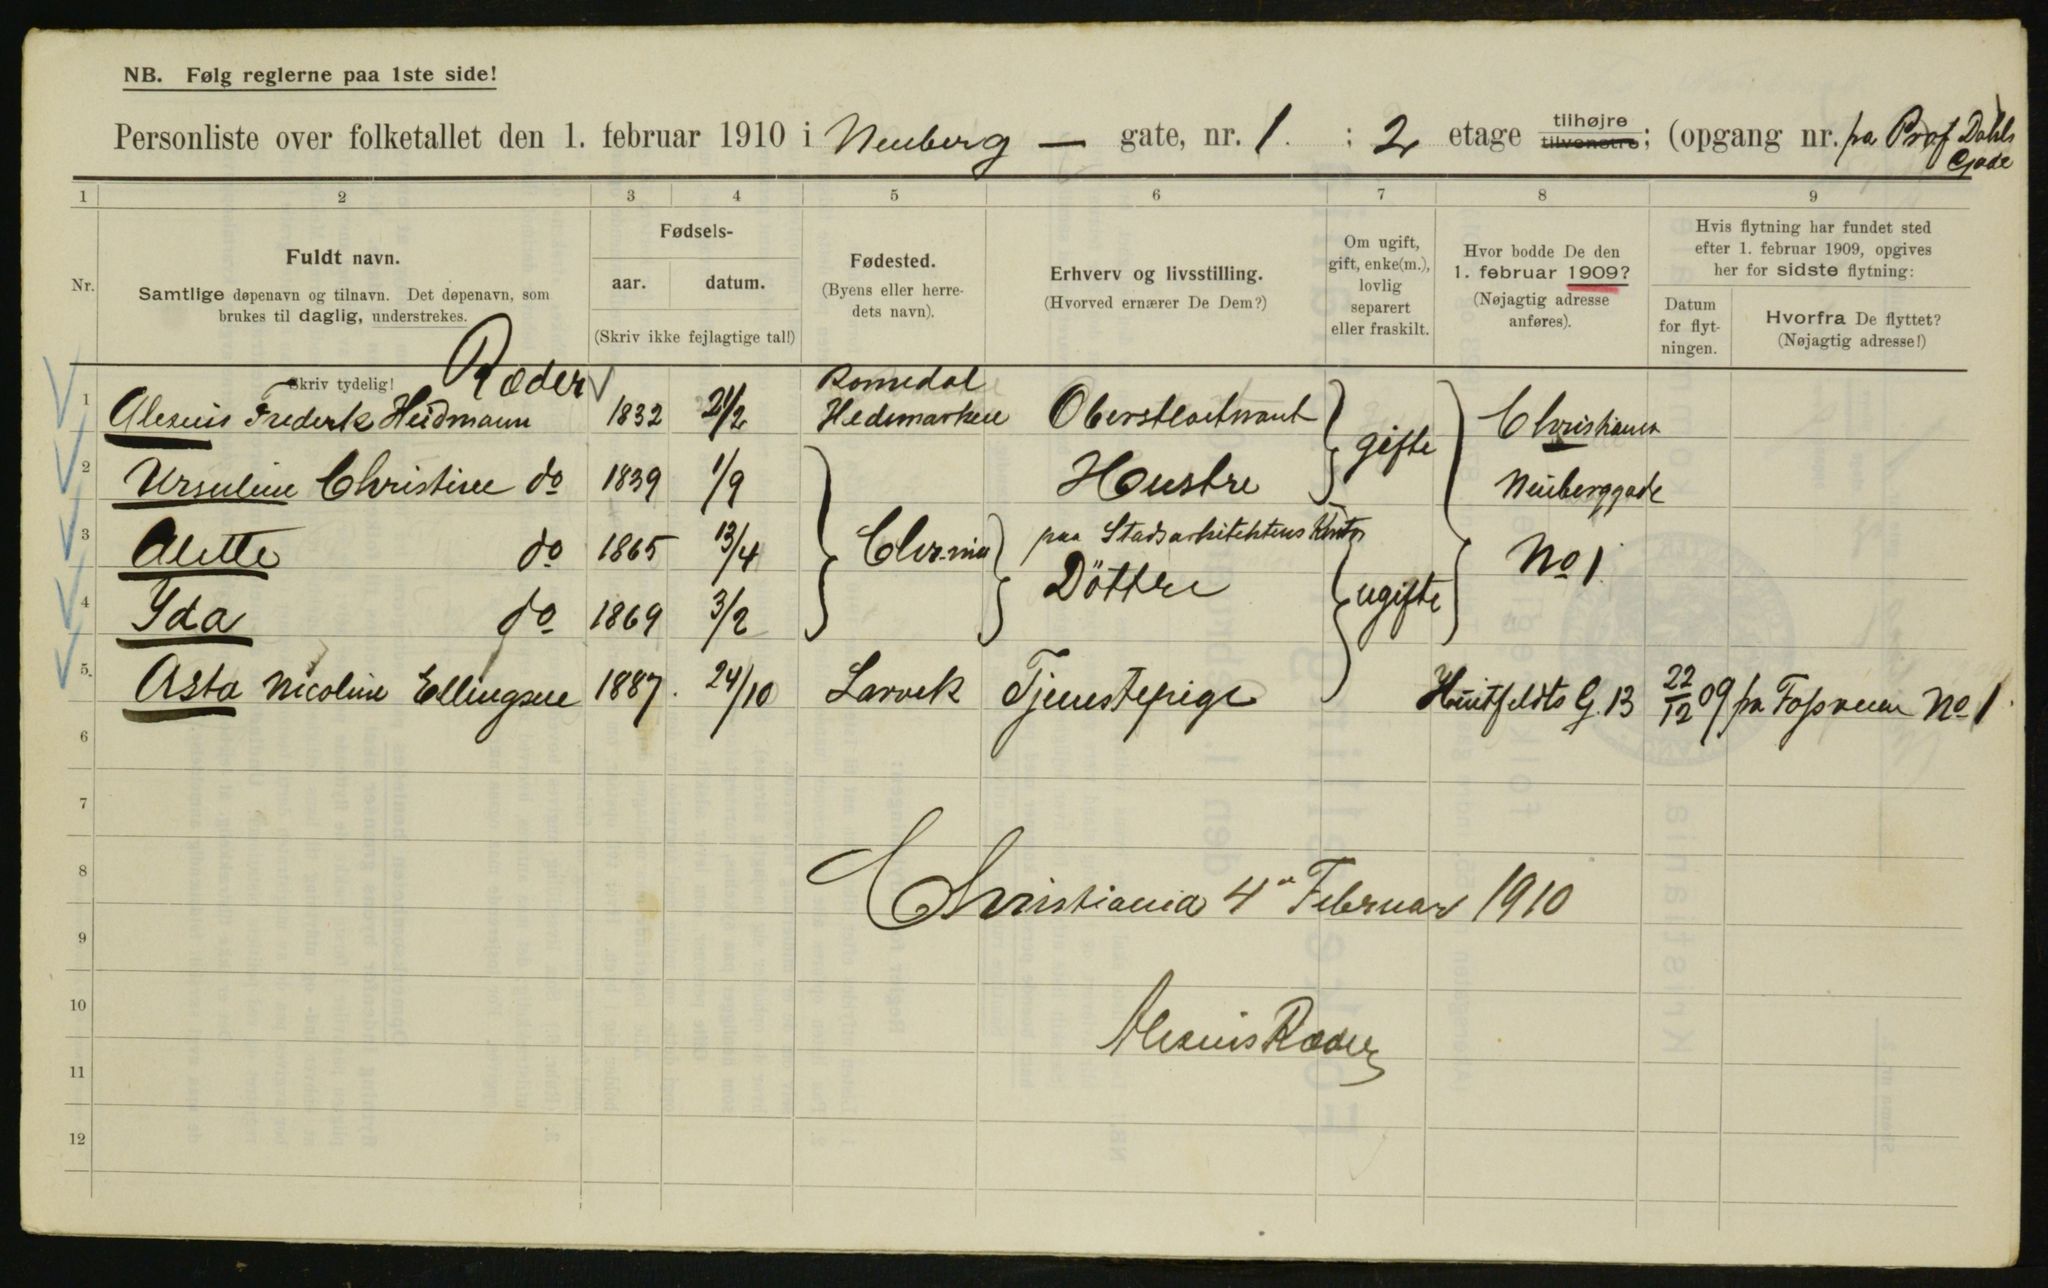 NB. Følg reglerne paa 1ste side!
Personliste over folketallet den 1. februar 1910 i Neuberg — gate, nr. 1. : 2 etage tilhøjre tilvenstre; (opgang nr. fra Prof Dahls Gade
1 2 3 4 5 6 7 8 9
Nr.
Fuldt navn.
Samtlige døpenavn og tilnavn. Det døpenavn, som
brukes til daglig, understrekes.
Skriv tydelig!
Fødsels-
aar. datum.
(Skriv ikke fejlagtige tal!)
Fødested.
(Byens eller herre-
dets navn).
Erhverv og livsstilling.
(Hvorved ernærer De Dem?)
Om ugift,
gift, enke(m.),
lovlig
separert
eller fraskilt.
Hvor bodde De den
1. februar 1909?
(Nøjagtig adresse
anføres).
Hvis flytning har fundet sted
efter 1. februar 1909, opgives
her for sidste flytning:
Datum
for flyt-
ningen.
Hvorfra De flyttet?
(Nøjagtig adresse!)
Ræder
1 Alexius Frederk Heidmann 1832 21/2 Romedal Hedemarken Oberstloitnant gifte Christiania
2 Ursuline Christine do 1839 1/9 Chr.nia Hustre Neuberggade
3 Alette do 1865 13/4 paa Stadsarkitektens Kontor No 1
4 Yda do 1869 3/2 Döttre ugifte
5. Asta Nicoline Ellingsen 1887. 24/10 Larvik Tjenestepige Huitfeldts G. 13 22/12 09 fra Fossveien No 1.
6
7
8
Christiania 4 Februar 1910
9
10
Alexius Ræder
11
12